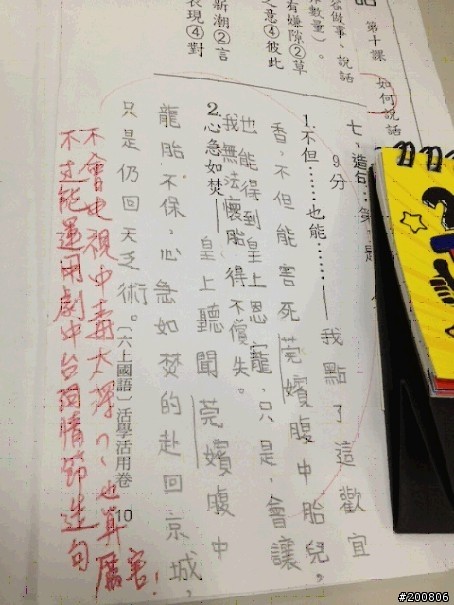 第十課 如何說話
做事、說話
數量)。
有嫌隙②草
之意④彼此
新潮②言
表現④對
七、造句：
9分
1.不但……也能……——我點了這歡宜
香，不但能害死莞嬪腹中胎兒，
也能得到皇上恩寵，只是，會讓
我無法懷胎，得不償失。
2.心急如焚——皇上聽聞莞嬪腹中
龍胎不保，心急如焚的赴回京城，
只是仍回天乏術。
〔六上國語〕活學活用卷 10
不會電視中毒太深了、也算厲害！
不過能運用劇中台詞情節造句
#200806